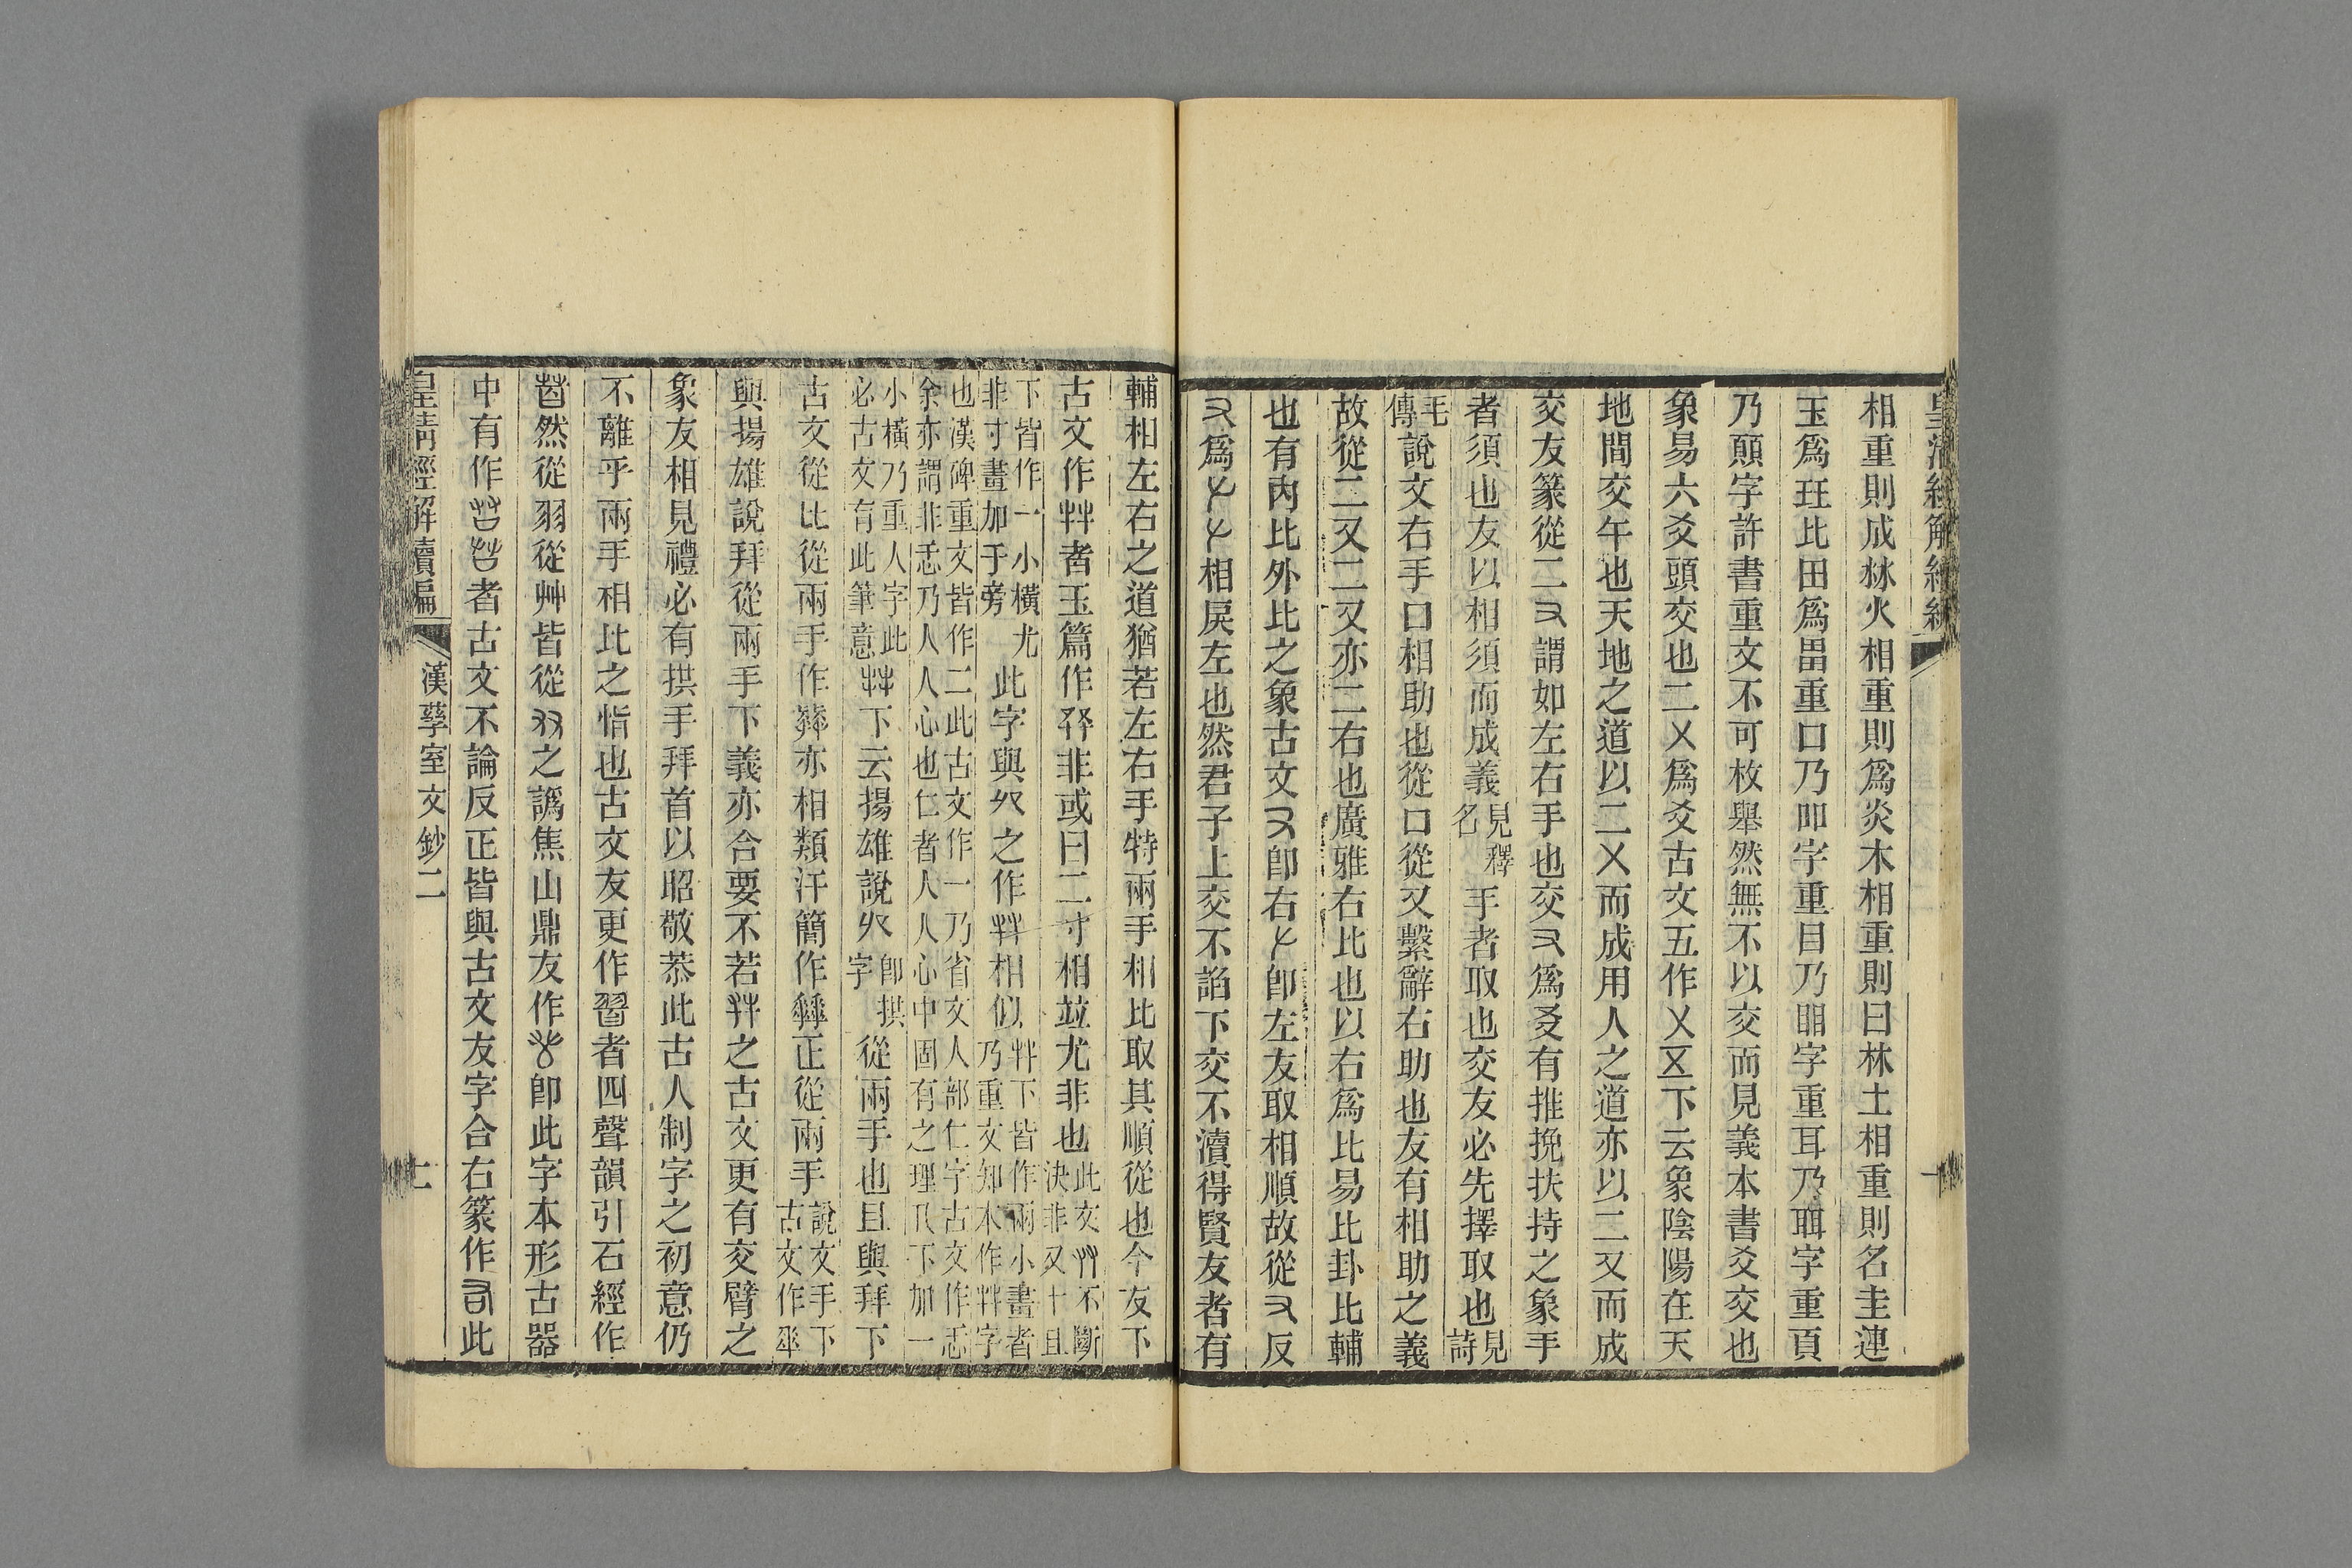 相重則成㷋火相重則爲炎木相重則曰林土相重則名圭連
玉爲玨比田爲畕重口乃吅字重目乃䀠字重耳乃聑字重頁
乃顚字許書重文不可枚舉然無不以交而見義本書爻交也
象易六爻頭交也二㐅爲爻古文五作㐅𠄡下云象陰陽在天
地間交午也天地之道以二㐅而成用人之道亦以二又而成
交友篆從二又謂如左右手也交又爲㕛有推挽扶持之象手
者須也友以相須而成義見釋名手者取也交友必先擇取也見詩
毛傳說文右手口相助也從口從又繫辭右助也友有相助之義
故從二又二又亦二右也廣雅右比也以右爲比易比卦比輔
也有內比外比之象古文又卽右𠂇卽左友取相順故從又反
又爲𠂇𠂇相戾左也然君子上交不諂下交不瀆得賢友者有
輔相左右之道猶若左右手特兩手相比取其順從也今友下
古文作𦫳者玉篇作㸚非或曰二寸相竝尤非也此文艸不斷決非又十且
下皆作一小橫尤非寸畫加于旁此字與𠬞之作相似下皆作兩小畫者乃重文知本作字
也漢碑重文皆作二此古文作一乃省文人部仁字古文作忎
余亦謂非忎乃人人心也仁者人人心中固有之理下加一
小橫乃重人字此必古文有此筆意下云揚雄說𠬞卽拱字從兩手也且與拜下
古文從比從兩手作亦相類汗簡作正從兩手說文手下古文作𠦒
與揚雄說拜從兩手下義亦合要不若之古文更有交臂之
象友相見禮必有拱手拜首以昭敬恭此古人制字之初意仍
不離乎兩手相比之恉也古文友更作習者四聲韻引石經作
然從羽從艸皆從之譌焦山鼎友作卽此字本形古器
中有作者古文不論反正皆與古文友字合右篆作司此
皇清經解續編
漢孳室文鈔二
七